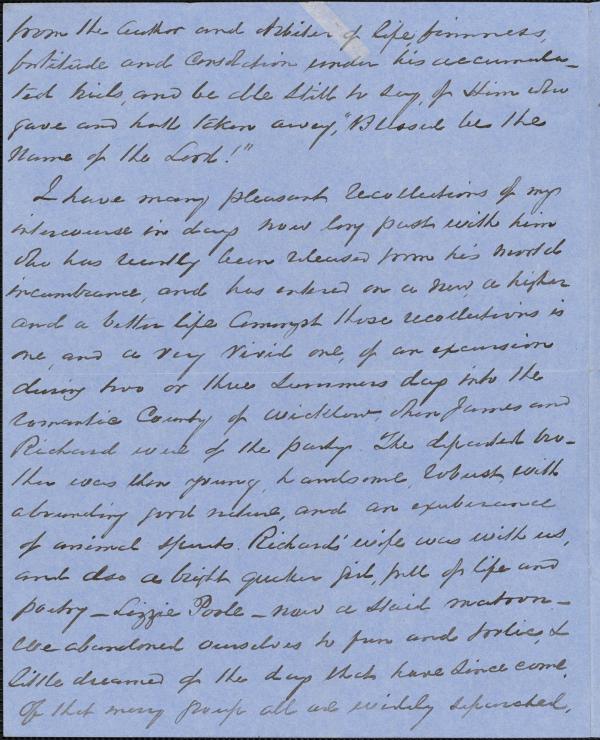 from the Author and Arbiter of life firmness,
fortitude and consolation under his accumula-
ted trials, and be able still to say of Him who
gave and hath taken away, "Blessed be the
Name of the Lord!"
I have many pleasant recollections of my
intercourse in days now long past with him
who has recently been released from his mortal
incumbrance, and has entered on a new, a higher
and a better life. Amongst those recollections is
one, and a very vivid one, of an excursion
during two or three Summers days into the
romantic County of Wicklow, when James and
Richard were of the party. The departed bro-
ther was then young, handsome, robust, with
abounding good nature, and an exuberance
of animal spirits. Richard's wife was with us,
and also a bright quaker girl, full of life and
poetry – Lizzie Poole – now a staid matron –
We abandoned ourselves to fun and frolic, &
little dreamed of the days that have since come.
Of that merry group all are widely separated,